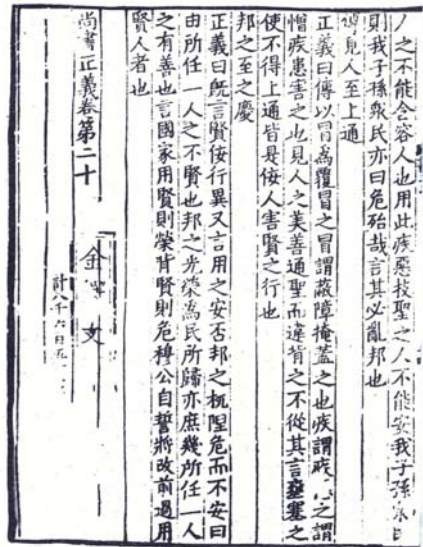 之不能含容人也用此疾惡技聖之人不能安我子孫眾民
則我子孫眾民亦曰危殆哉言其必亂邦也
傳見人至上通
正義曰傳以冒為覆冒之冒謂蔽障掩蓋之也疾謂疾之謂
憎疾患害之也見人之美善通聖而違背之不從其言壅塞之
使不得上通皆是佞人害賢之行也
邦之至之慶
正義曰既言賢佞行異又言用之安否邦之杌隉危而不安曰
由所任一人之不賢也邦之光榮為民所歸亦庶幾所任一人
之有善也言國家用賢則榮背賢則危穆公自誓將改前過用
賢人者也
尚書正義卷第二十
金澤文
計八千六百五